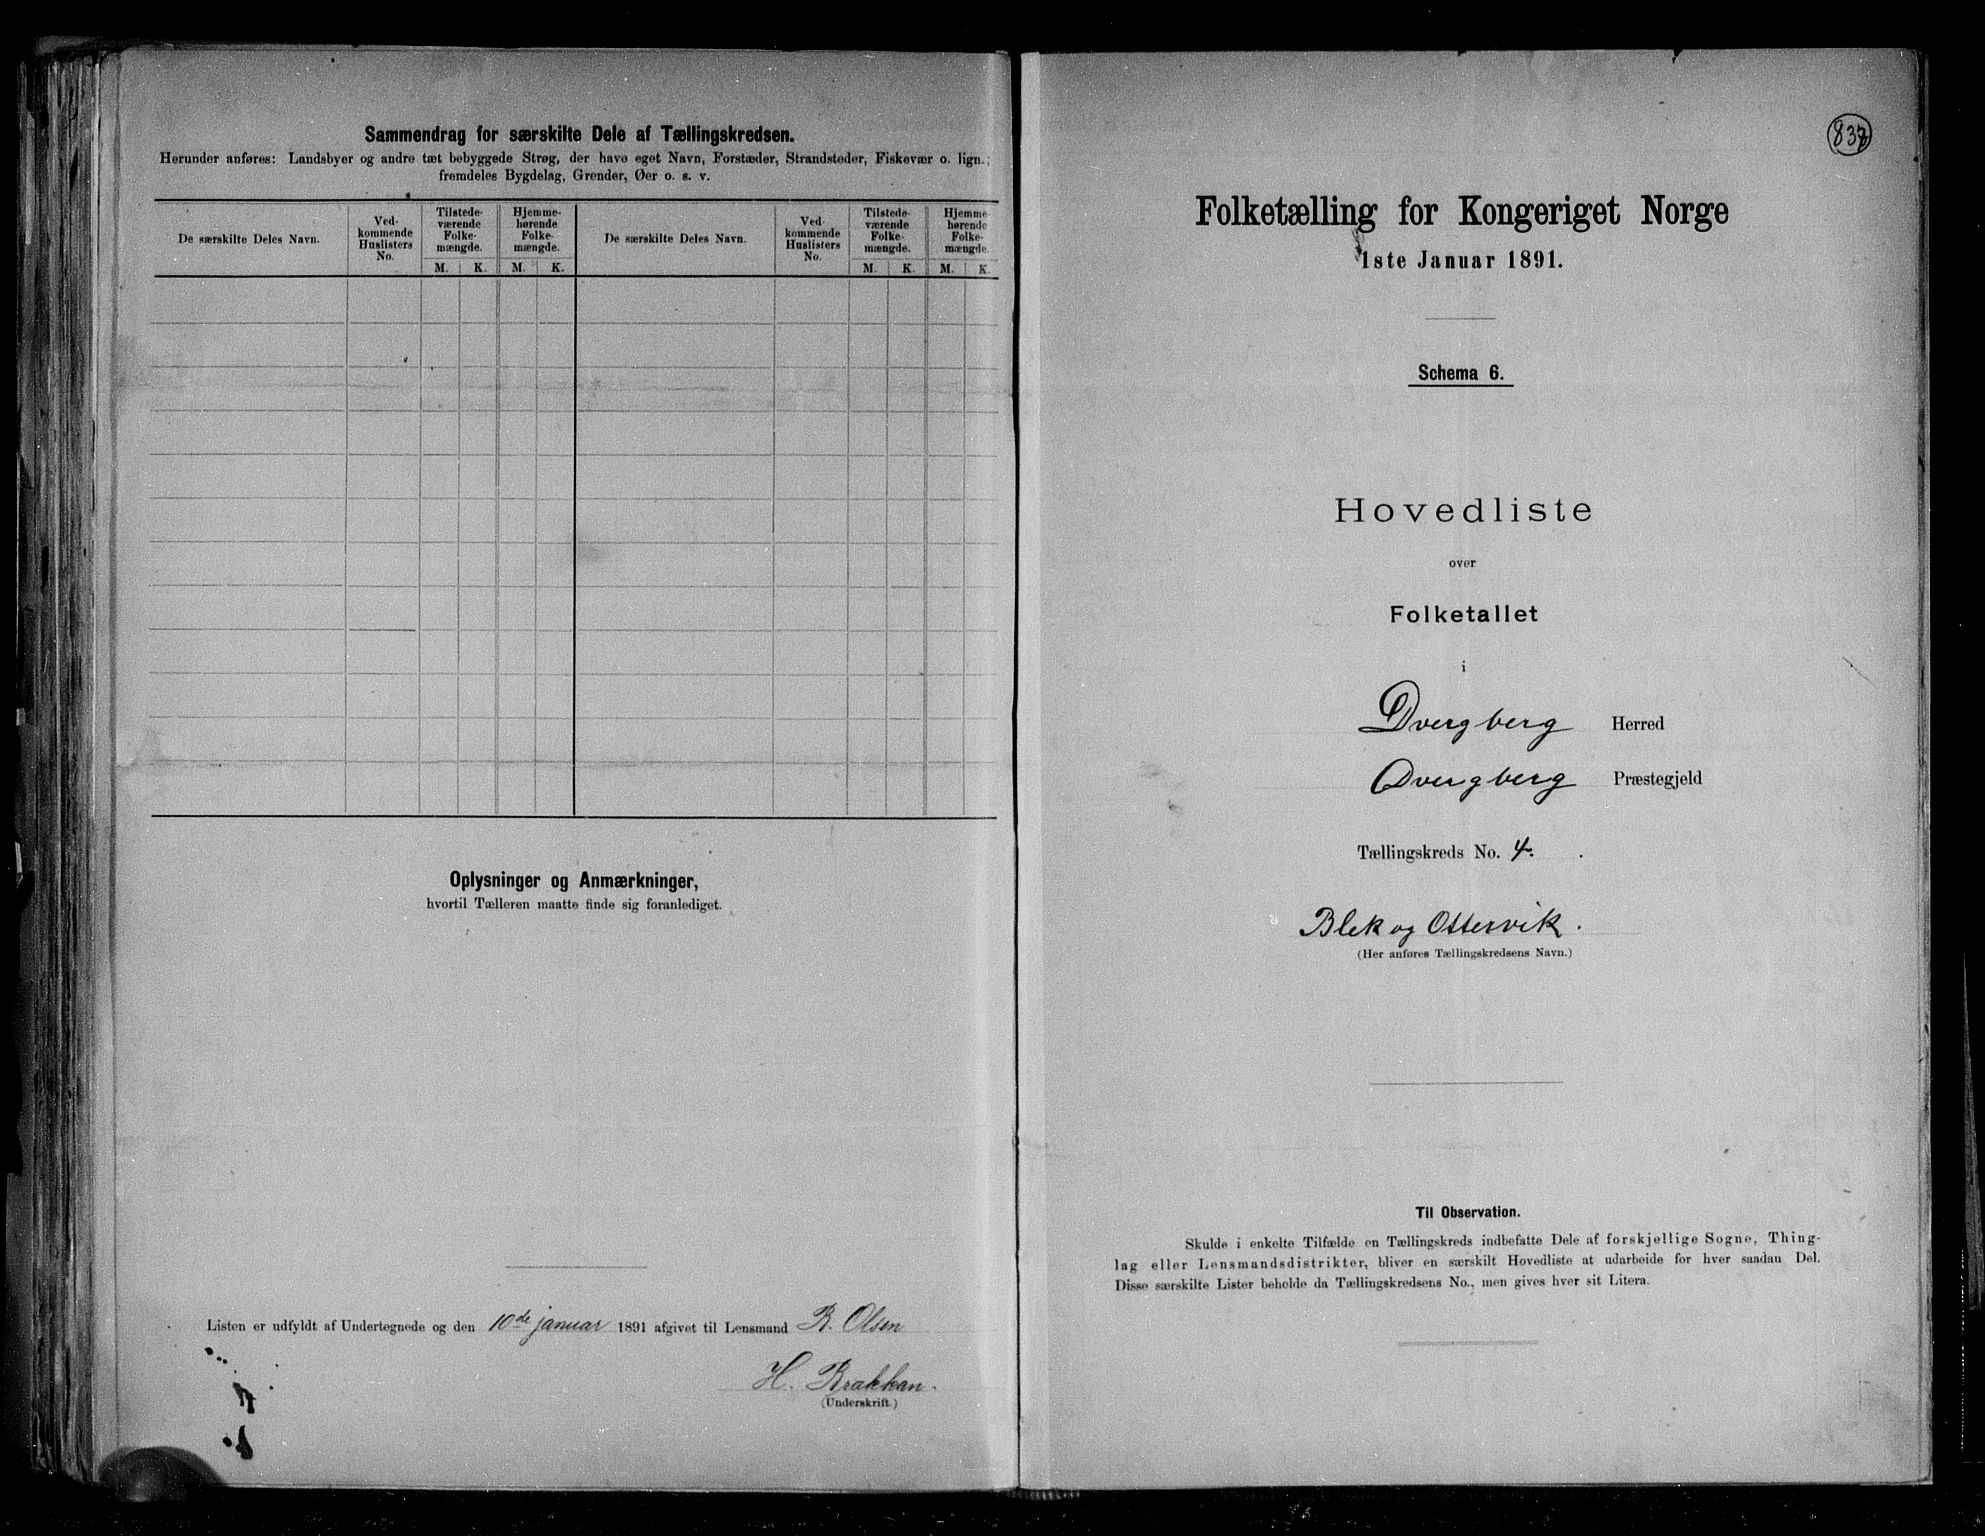 Sammendrag for særskilte Dele af Tællingskredsen.
Herunder anføres: Landsbyer og andre tæt bebyggede Strøg, der have eget Navn, Forstæder, Strandsteder, Fiskevær o. lign.;
fremdeles Bygdelag, Grender, Øer o. s. v.
De særskilte Deles Navn.
Ved-
kommende
Huslisters
No.
Tilstede-
værende
Folke-
mængde.
Hjemme-
hørende
Folke-
mængde.
M. K. M. K.
De særskilte Deles Navn.
Ved-
kommende
Huslisters
No.
Tilstede-
værende
Folke-
mængde.
Hjemme-
hørende
Folke-
mængde.
M. K. M. K.
Oplysninger og Anmærkninger,
hvortil Tælleren maatte finde sig foranlediget.
Listen er udfyldt af Undertegnede og den 10de januar 1891 afgivet til Lensmand B. Olsen
H. Brakkan.
(Underskrift.)
837
Folketælling for Kongeriget Norge
1ste Januar 1891.
Schema 6.
Hovedliste
over
Folketallet
i
Dvergberg Herred
Dvergberg Præstegjeld
Tællingskreds No. 4.
Blek og Ottervik.
(Her anføres Tællingskredsens Navn.)
Til Observation.
Skulde i enkelte Tilfælde en Tællingskreds indbefatte Dele af forskjellige Sogne, Thing-
lag eller Lensmandsdistrikter, bliver en særskilt Hovedliste at udarbeide for hver saadan Del.
Disse særskilte Lister beholde da Tællingskredsens No., men gives hver sit Litera.